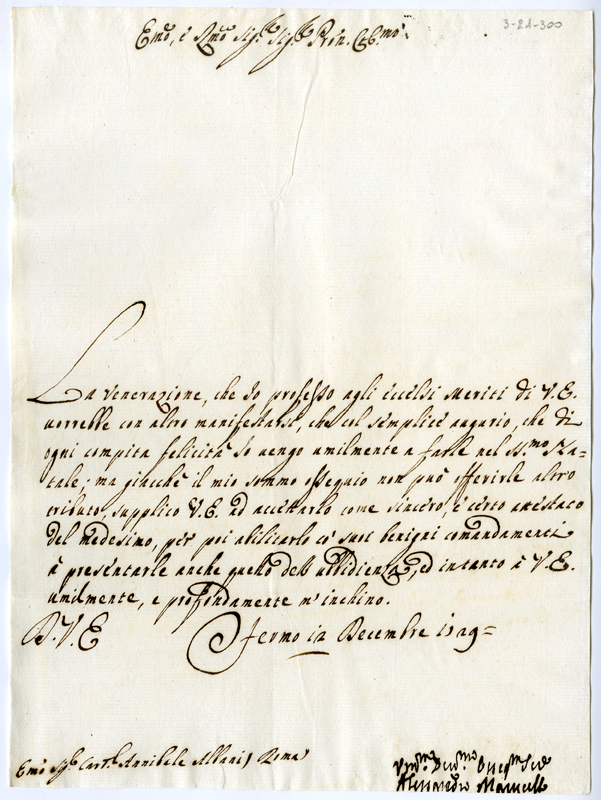 3-21-300
Emo, e Rmo Sig.re Sig.re Pron. Col.mo
La venerazione, che Io professo agli eccelsi meriti di V. E.
vorrebbe con altro manifestarsi, che col semplice augurio, che di
ogni compita felicità Io vengo umilmente a farle nel SS.mo Na=
tale; ma giacchè il mio sommo ossequio non può offerirle altro
tributo, supplico V. E. ad accettarlo come sincero, e certo attestato
del medesimo, per poi abilitarlo co' suoi benigni comandamenti
à presentarle anche quello dell'ubbidienza, ed intanto à V. E.
umilmente, e profondamente m'inchino.
D. V. E Fermo 12 Decembre 1729=
Emo Sig.re Card.le Annibale Albani, Roma
Um.mo Deu.mo Osseq.mo Ser.
Alessandro